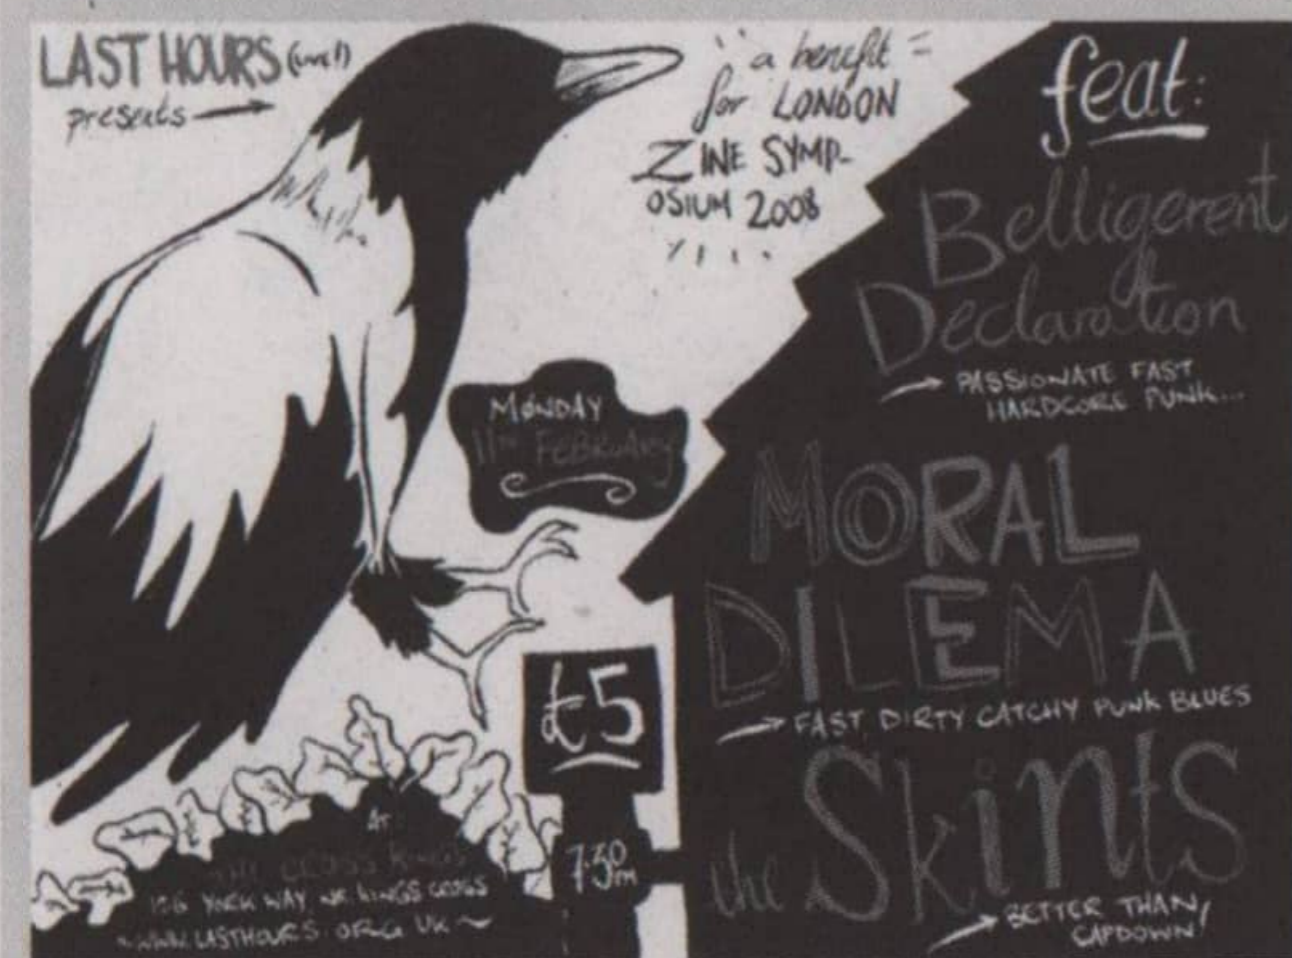 LAST HOURS (live!)
presents
a benefit
for LONDON
ZINE SYMP-
OSIUM 2008
feat:
Belligerent
Declaration
PASSIONATE FAST
HARDCORE PUNK...
MONDAY
11TH FEBRUARY
MORAL
DILEMA
FAST, DIRTY CATCHY PUNK BLUES
the Skints
BETTER THAN
CAPDOWN!
£5
7.30
PM
AT
THE CROSS KINGS
126 YORK WAY, NR. KINGS CROSS
WWW.LASTHOURS.ORG.UK ~